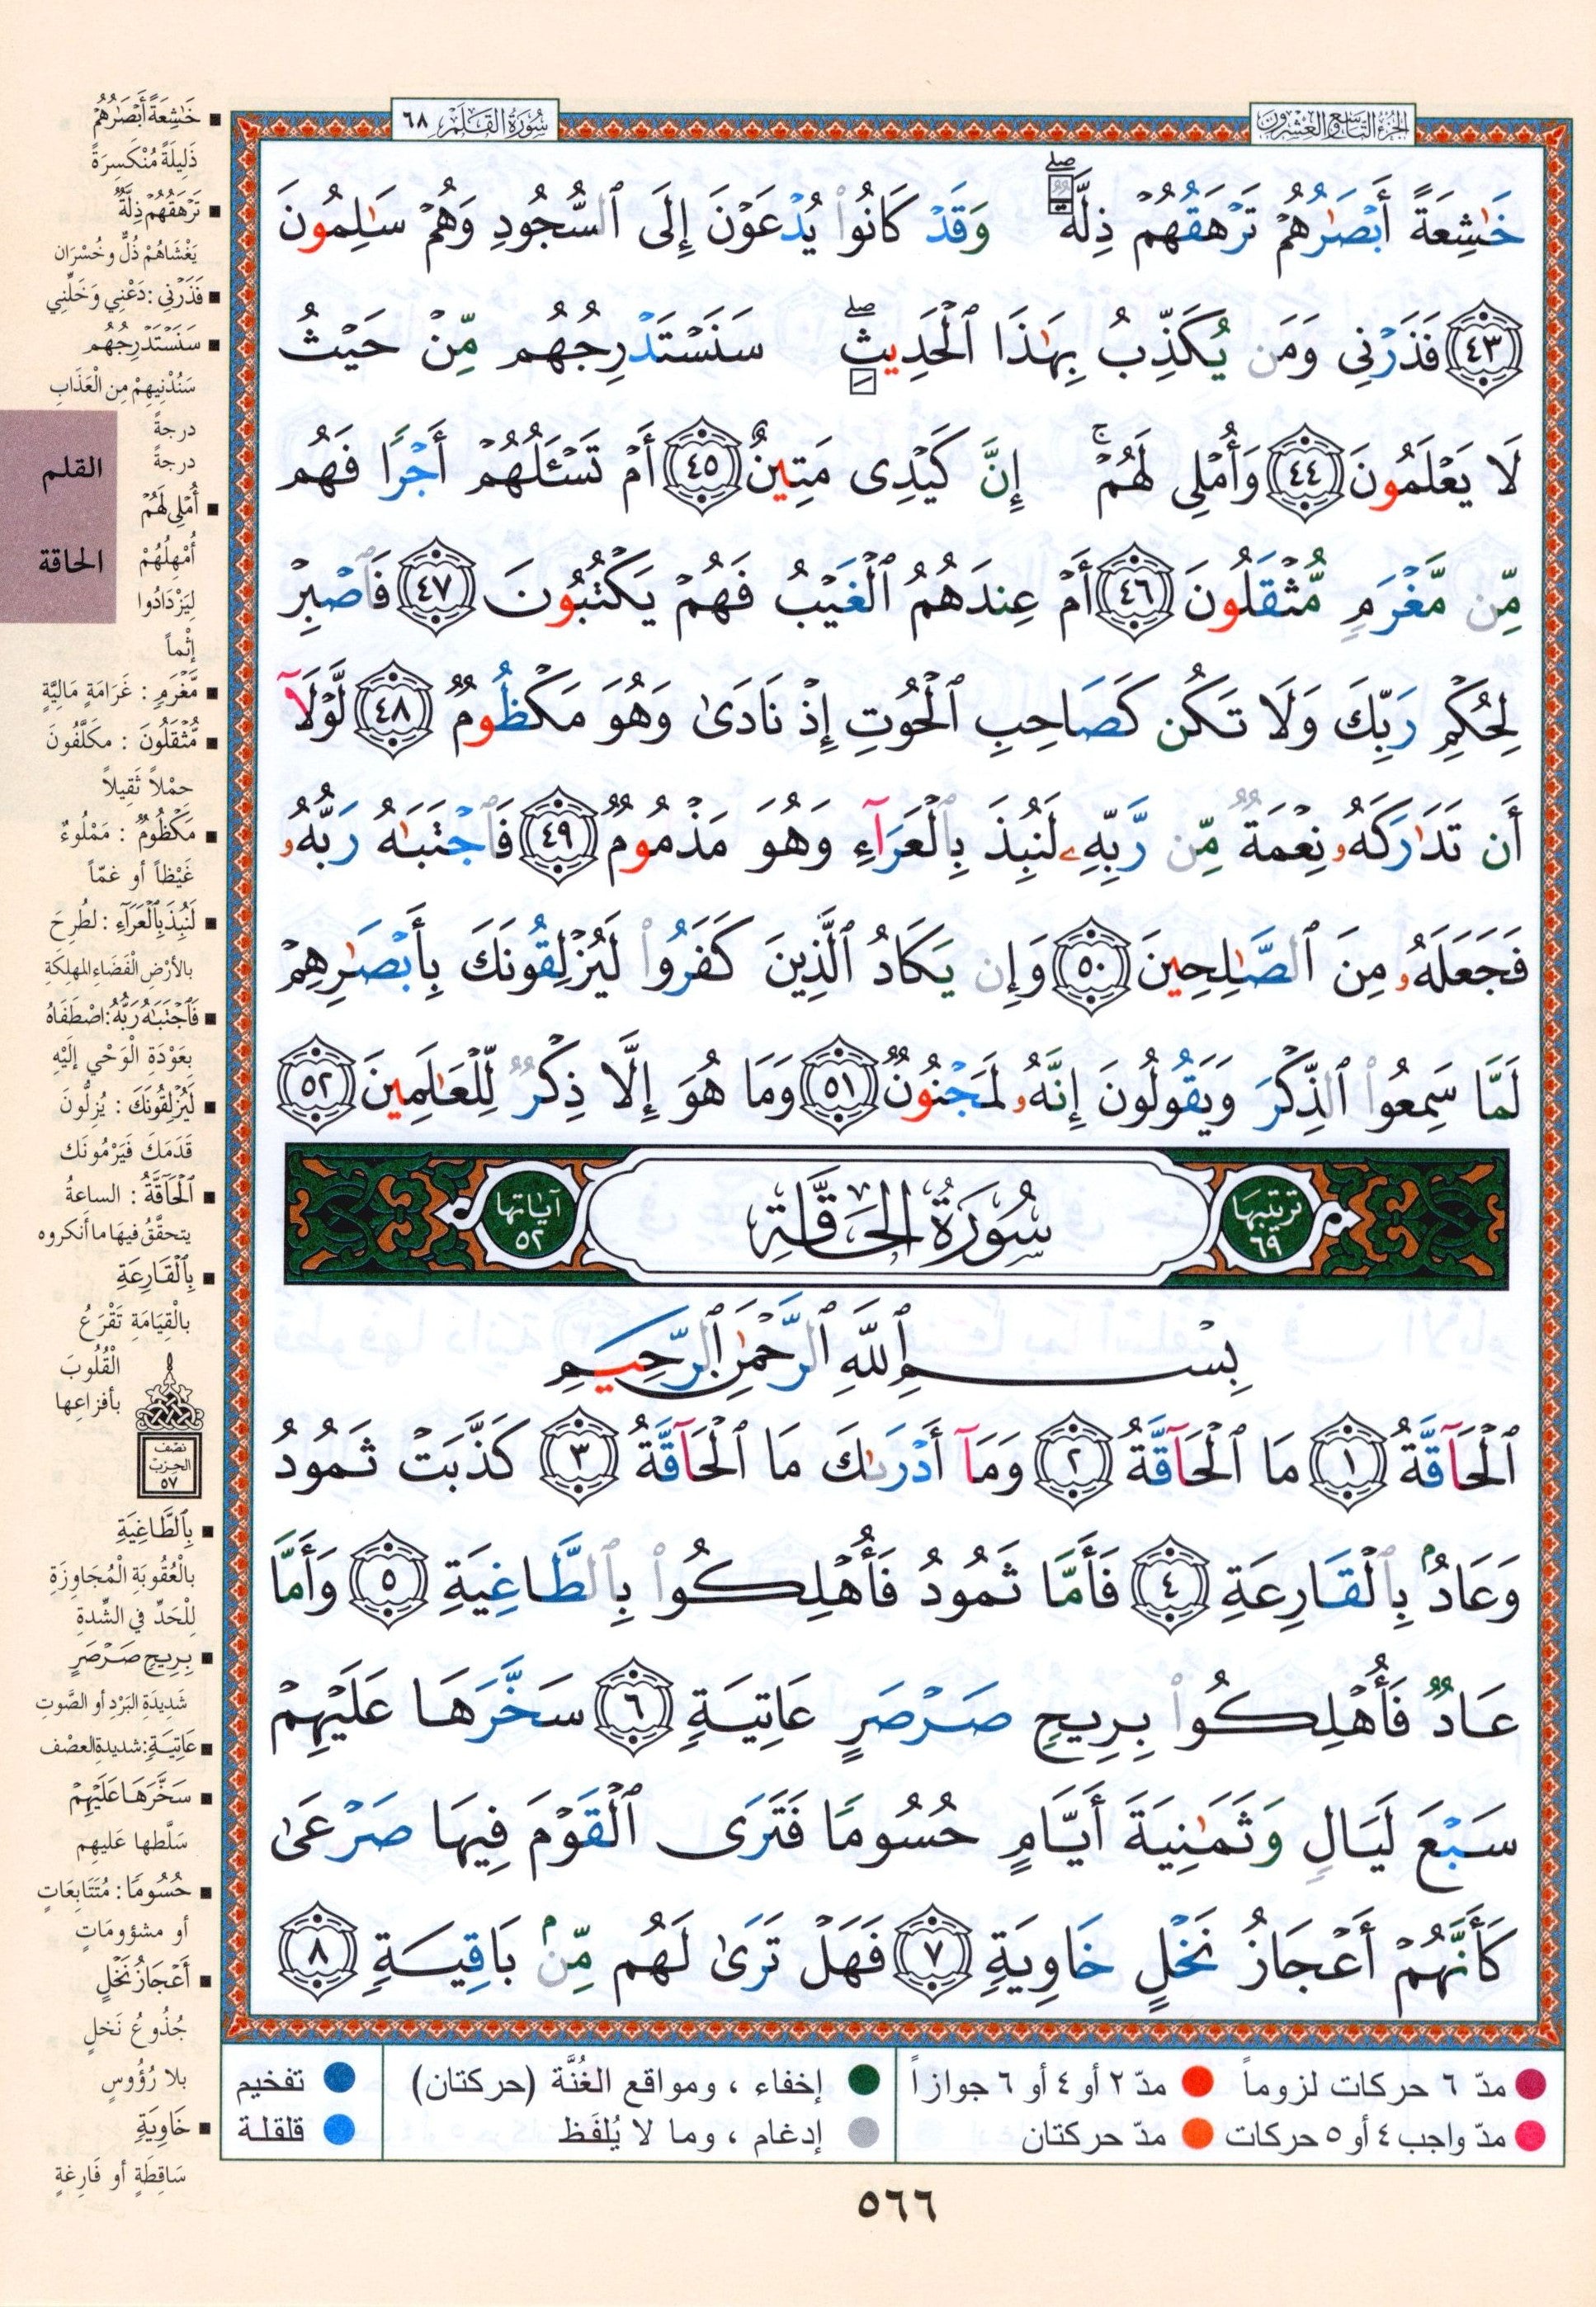 الجزء التاسع والعشرون
سُورَةُ القَلَمِ ٦٨
خَٰشِعَةً أَبْصَٰرُهُمْ تَرْهَقُهُمْ ذِلَّةٌ ۖ وَقَدْ كَانُوا۟ يُدْعَوْنَ إِلَى ٱلسُّجُودِ وَهُمْ سَٰلِمُونَ
٤٣ فَذَرْنِى وَمَن يُكَذِّبُ بِهَٰذَا ٱلْحَدِيثِ ۖ سَنَسْتَدْرِجُهُم مِّنْ حَيْثُ
لَا يَعْلَمُونَ ٤٤ وَأُمْلِى لَهُمْ ۚ إِنَّ كَيْدِى مَتِينٌ ٤٥ أَمْ تَسْـَٔلُهُمْ أَجْرًا فَهُم
مِّن مَّغْرَمٍ مُّثْقَلُونَ ٤٦ أَمْ عِندَهُمُ ٱلْغَيْبُ فَهُمْ يَكْتُبُونَ ٤٧ فَٱصْبِرْ
لِحُكْمِ رَبِّكَ وَلَا تَكُن كَصَاحِبِ ٱلْحُوتِ إِذْ نَادَىٰ وَهُوَ مَكْظُومٌ ٤٨ لَّوْلَآ
أَن تَدَٰرَكَهُۥ نِعْمَةٌ مِّن رَّبِّهِۦ لَنُبِذَ بِٱلْعَرَآءِ وَهُوَ مَذْمُومٌ ٤٩ فَٱجْتَبَٰهُ رَبُّهُۥ
فَجَعَلَهُۥ مِنَ ٱلصَّٰلِحِينَ ٥٠ وَإِن يَكَادُ ٱلَّذِينَ كَفَرُوا۟ لَيُزْلِقُونَكَ بِأَبْصَٰرِهِمْ
لَمَّا سَمِعُوا۟ ٱلذِّكْرَ وَيَقُولُونَ إِنَّهُۥ لَمَجْنُونٌ ٥١ وَمَا هُوَ إِلَّا ذِكْرٌ لِّلْعَٰلَمِينَ ٥٢
ترتيبها ٦٩ سُورَةُ الحَاقَّةِ آياتها ٥٢
بِسْمِ ٱللَّهِ ٱلرَّحْمَٰنِ ٱلرَّحِيمِ
ٱلْحَآقَّةُ ١ مَا ٱلْحَآقَّةُ ٢ وَمَآ أَدْرَىٰكَ مَا ٱلْحَآقَّةُ ٣ كَذَّبَتْ ثَمُودُ
وَعَادٌۢ بِٱلْقَارِعَةِ ٤ فَأَمَّا ثَمُودُ فَأُهْلِكُوا۟ بِٱلطَّاغِيَةِ ٥ وَأَمَّا
عَادٌ فَأُهْلِكُوا۟ بِرِيحٍ صَرْصَرٍ عَاتِيَةٍ ٦ سَخَّرَهَا عَلَيْهِمْ
سَبْعَ لَيَالٍ وَثَمَٰنِيَةَ أَيَّامٍ حُسُومًا فَتَرَى ٱلْقَوْمَ فِيهَا صَرْعَىٰ
كَأَنَّهُمْ أَعْجَازُ نَخْلٍ خَاوِيَةٍ ٧ فَهَلْ تَرَىٰ لَهُم مِّنۢ بَاقِيَةٍ ٨
خَٰشِعَةً أَبْصَٰرُهُمْ
ذَلِيلَةً مُنْكَسِرَةً
تَرْهَقُهُمْ ذِلَّةٌ
يَغْشَاهُمْ ذُلٌّ وخُسْرَان
فَذَرْنِي : دَعْنِي وَخَلِّنِي
سَنَسْتَدْرِجُهُم
سَنُدْنِيهِمْ مِن الْعَذَابِ
درجةً
درجةً
أُمْلِي لَهُمْ
أُمْهِلُهُمْ
لِيَزْدَادُوا
إِثْماً
مَّغْرَمٍ : غَرَامَةٍ مَالِيَّةٍ
مُّثْقَلُونَ : مكَلَّفُونَ
حِمْلاً ثَقِيلاً
مَكْظُومٌ : مَمْلُوءٌ
غَيْظاً أو غمّاً
لَنُبِذَ بِٱلْعَرَآءِ : لَطُرِحَ
بالأرْضِ الْفَضَاءِ المهلِكَةِ
فَٱجْتَبَٰهُ رَبُّهُ : اصْطَفَاهُ
بعَوْدَةِ الْوَحْي إلَيْهِ
لَيُزْلِقُونَكَ : يُزِلُّونَ
قَدَمَكَ فَيَرْمُونَك
ٱلْحَآقَّةُ : الساعةُ
يتحقَّقُ فيهَا ما أنكروه
بِٱلْقَارِعَةِ
بالْقِيَامَةِ تَقْرَعُ
الْقُلُوبَ
بأفزاعِها
نصف
الحزب
٥٧
بِٱلطَّاغِيَةِ
بالْعُقُوبَةِ الْمُجَاوِزَةِ
لِلْحَدِّ في الشِّدةِ
بِرِيحٍ صَرْصَرٍ
شَدِيدَةِ البَرْدِ أو الصَّوتِ
عَاتِيَةٍ : شديدةِ العصْف
سَخَّرَهَا عَلَيْهِمْ
سَلَّطها عَليهِم
حُسُومًا : مُتَتَابِعَاتٍ
أو مشؤومَاتٍ
أَعْجَازُ نَخْلٍ
جُذُوعُ نَخلٍ
بلا رُؤُوسٍ
خَاوِيَةٍ
سَاقِطَةٍ أو فَارِغةٍ
القلم
الحاقة
مدّ ٦ حركات لزوماً مدّ ٢ أو ٤ أو ٦ جوازاً إخفاء ، ومواقع الغُنَّة (حركتان) تفخيم
مدّ واجب ٤ أو ٥ حركات مدّ حركتان إدغام ، وما لا يُلفَظ قلقلة
٥٦٦